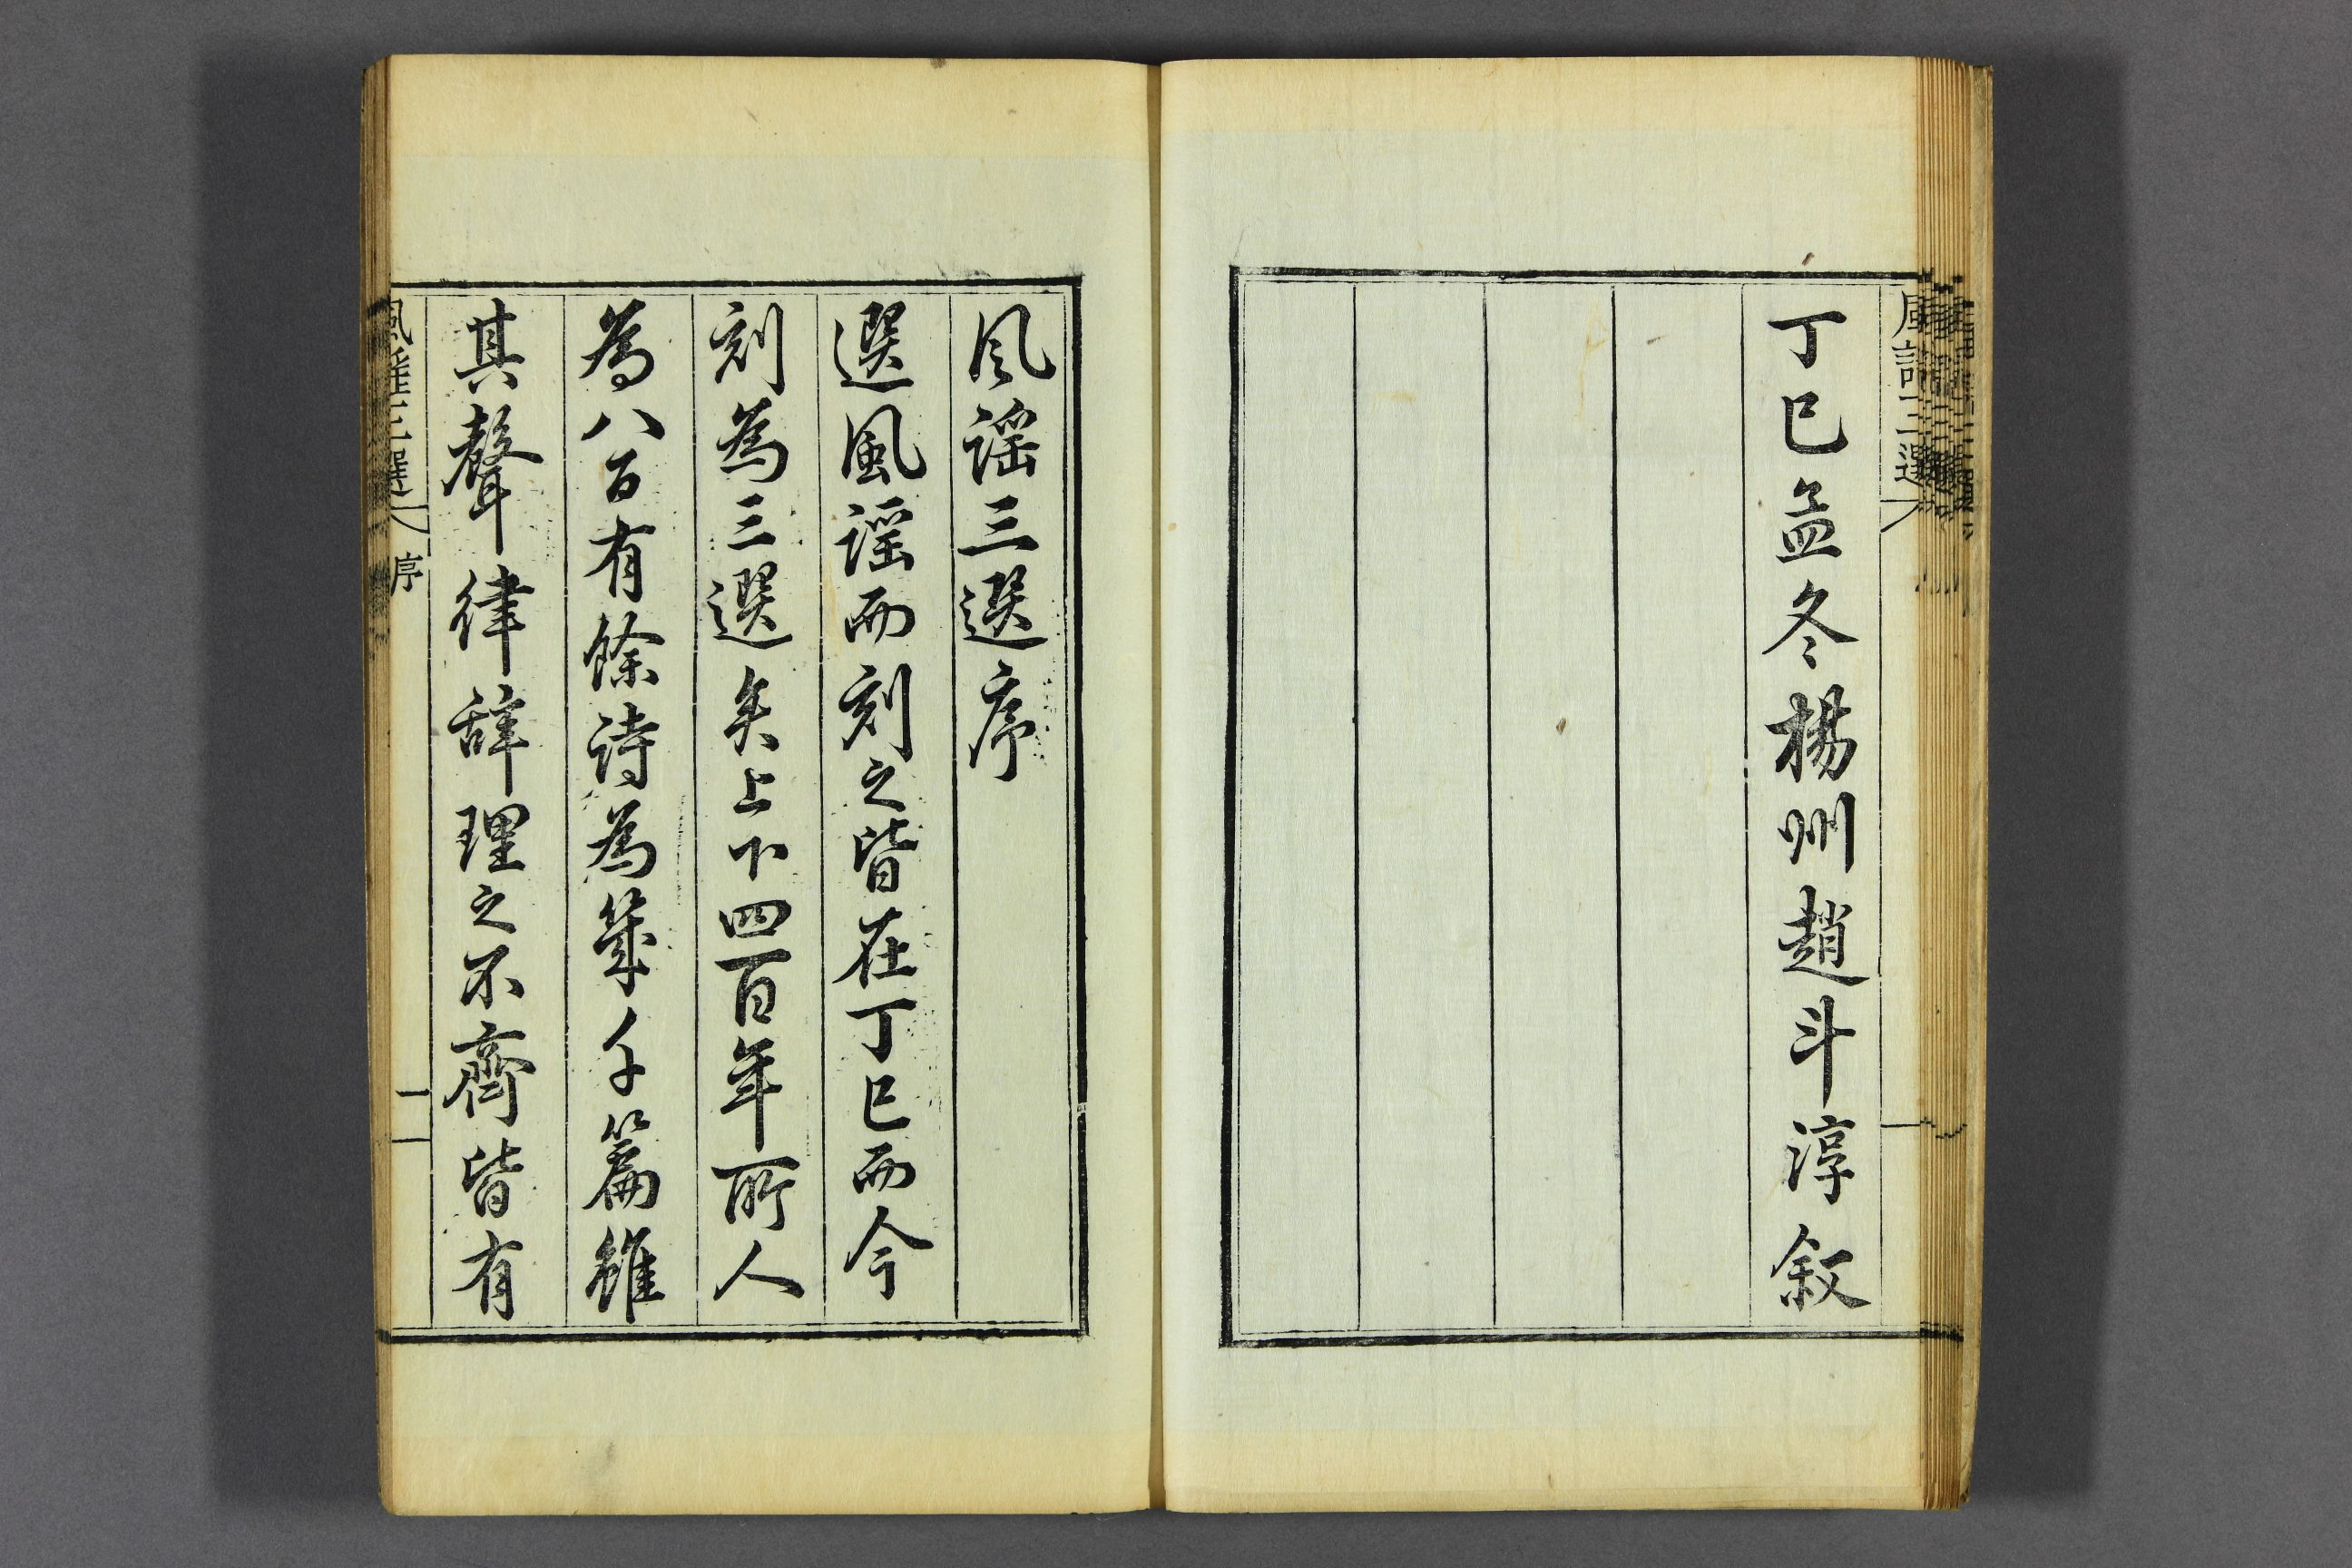 丁巳孟冬楊州趙斗淳叙
風謡三選序
選風謡而刻之皆在丁巳而今
刻為三選矣上下四百年所人
為八百有餘詩為幾千篇雖
其聲律辞理之不齊皆有
風謠三選 序 一